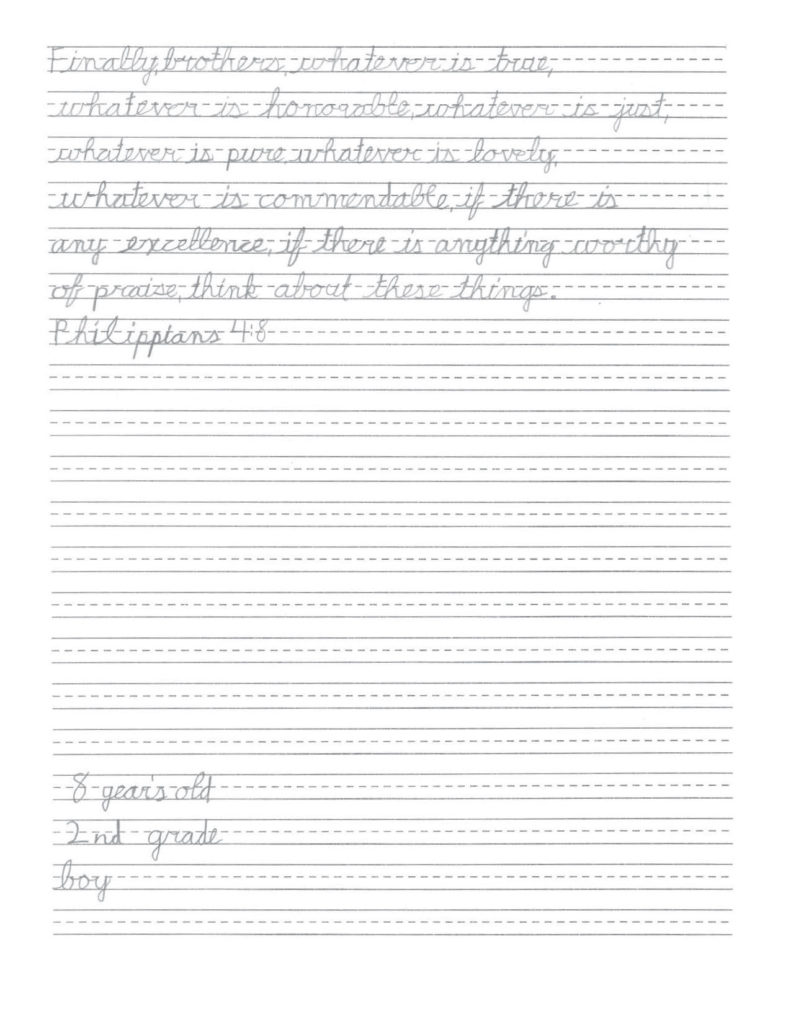 Finally, brothers, whatever is true,
whatever is honorable, whatever is just,
whatever is pure, whatever is lovely,
whatever is commendable, if there is
any excellence, if there is anything worthy
of praise, think about these things.
Philippians 4:8
8 year's old
2nd grade
boy